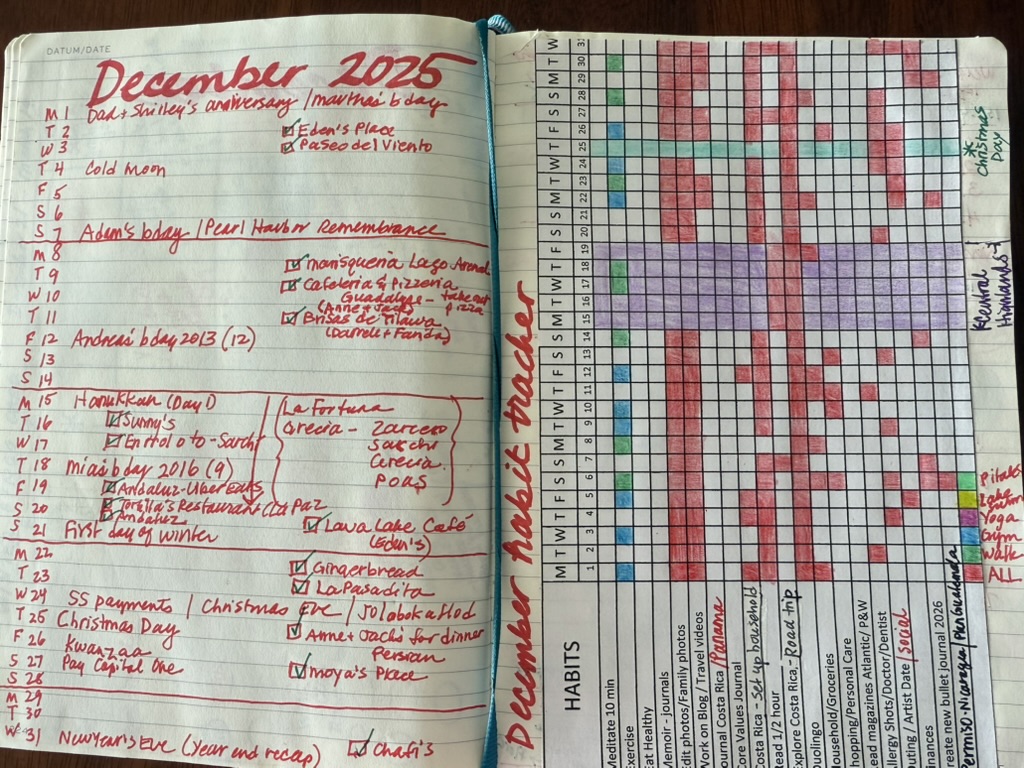 DATUM/DATE
December 2025
M 1 Dad + Shirley's anniversary / martha's bday
T 2 Eden's Place
W 3 Paseo del Viento
T 4 Cold Moon
F 5
S 6
S 7 Adam's bday / Pearl Harbor Remembrance
M 8 marisqueria Lago Arenal
T 9 Cafeteria & Pizzeria
W 10 Guadalupe - takeout pizza
(Anne + Jack)
T 11 Brisas de Tilawa
(Darrell + Farida)
F 12 Andrea's bday 2013 (12)
S 13
S 14
M 15 Hanukkah (Day 1)
T 16 Sunny's
W 17 Entrol o to - Sarchi
T 18 mia's bday 2016 (9)
F 19 Andaluz - Uber Eats
S 20 Restaurant La Paz
Andaluz
S 21 First day of winter
La Fortuna
Grecia - Zarcero
Sarchi
Grecia
Poas
Lava Lake Café
(Eden's)
M 22 Gingerbread
T 23 La Pasadita
W 24 SS payments / Christmas Eve / Jolobokaflod
T 25 Christmas Day Anne + Jack's for dinner
Persian
F 26 Kwanzaa
S 27 Pay Capital One moya's Place
S 28
M 29
T 30
W 31 New Year's Eve (year end recap) Chafi's
December habit tracker
HABITS
M T W T F S S M T W T F S S M T W T F S S M T W T F S S M T W
1 2 3 4 5 6 7 8 9 10 11 12 13 14 15 16 17 18 19 20 21 22 23 24 25 26 27 28 29 30 31
Meditate 10 min
Exercise
Eat Healthy
Memoir - journals
Edit photos/Family photos
Work on Blog / Travel videos
Journal Costa Rica / Panama
Core Values Journal
Costa Rica - Set up household
Read 1/2 hour
Explore Costa Rica - Road trip
Duolingo
Household/Groceries
Shopping/Personal Care
Read magazines Atlantic/ P&W
Allergy Shots/Doctor/Dentist
Outing / Artist Date / Social
Finances
Create new bullet journal 2026
Permiso - Nicaragua
* Christmas Day
* Central Highlands
Pilates
Yoga
Gym
Walk
ALL